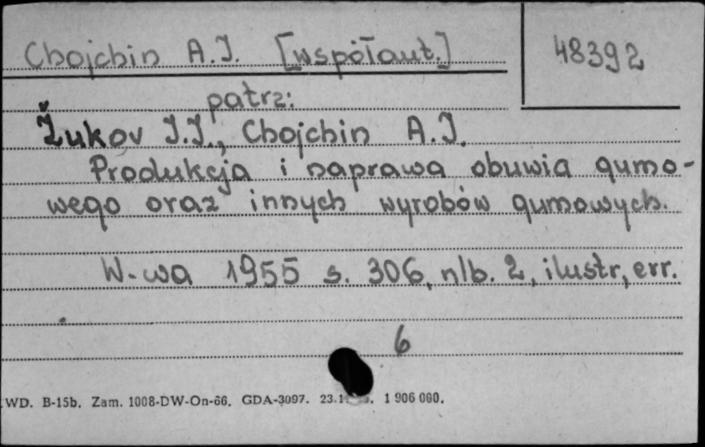 Chojchin A.I. [współaut.]
48392
patrz:
Žukov I.I., Chojchin A.I.
Produkcja i naprawa obuwia gumo-
wego oraz innych wyrobów gumowych.
W-wa 1955 s. 306, nlb. 2, ilustr, err.
6
WD. B-15b. Zam. 1008-DW-On-66. GDA-3097. 1 906 000.